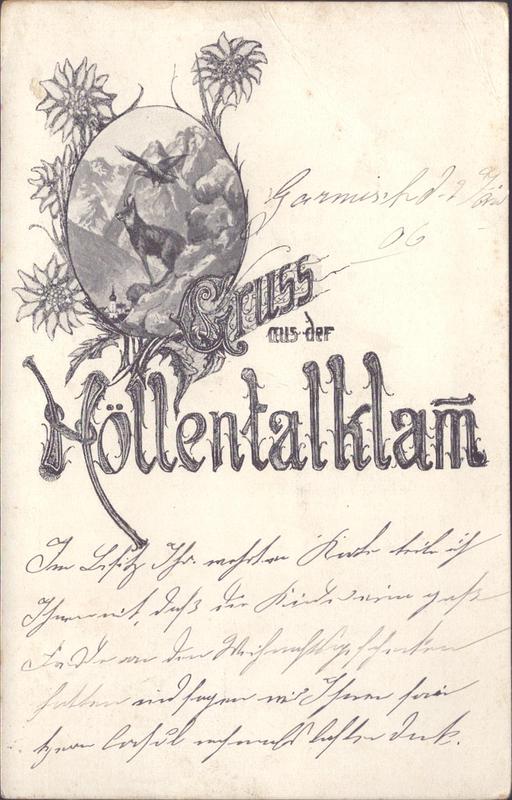 Garmisch d. 9
06
Gruss
aus der
Höllentalklam̅
Im Besitz Ihr. werten Karte teile ich
Ihnen mit, daß die Kinder eine große
Freude an den Weihnachtsgeschenken
hatten und sagen wir Ihnen
nochmals besten Dank.